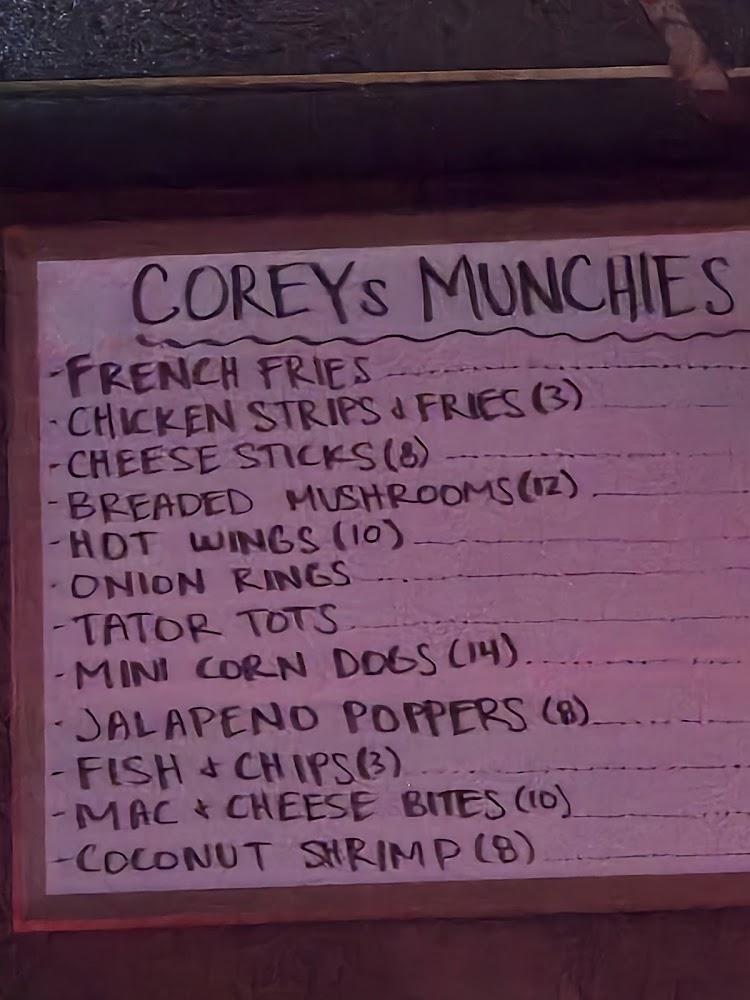 COREYs MUNCHIES
-FRENCH FRIES
-CHICKEN STRIPS & FRIES (3)
-CHEESE STICKS (8)
-BREADED MUSHROOMS (12)
-HOT WINGS (10)
-ONION RINGS
-TATOR TOTS
-MINI CORN DOGS (14)
-JALAPENO POPPERS (8)
-FISH & CHIPS (3)
-MAC & CHEESE BITES (10)
-COCONUT SHRIMP (8)